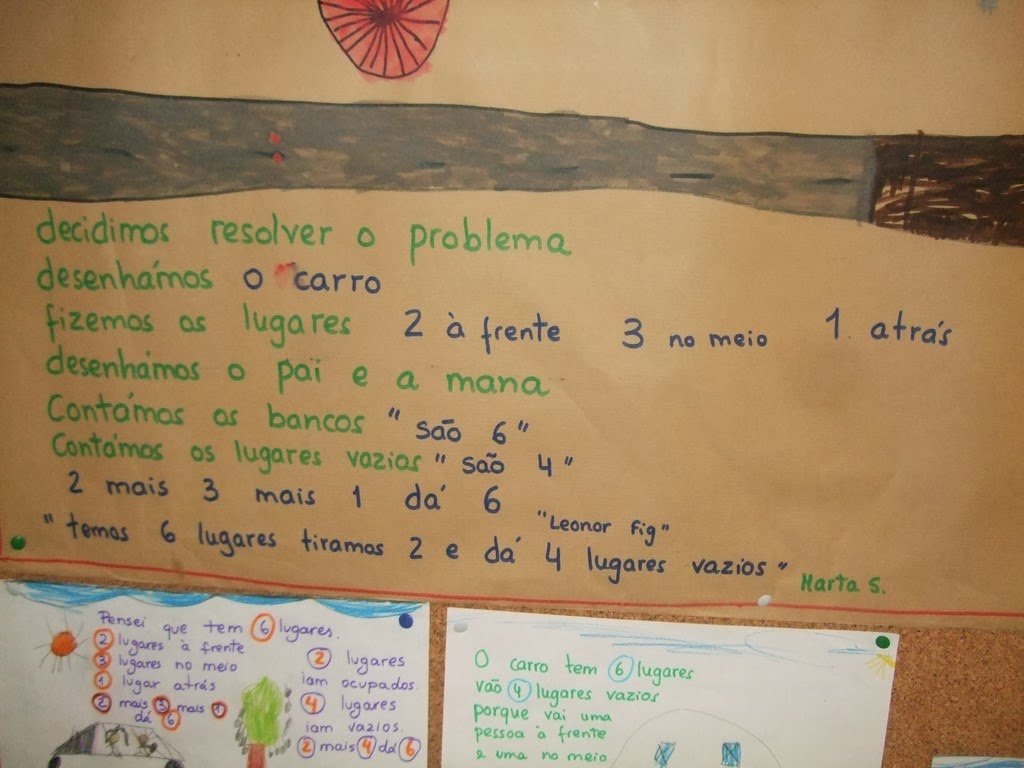 decidimos resolver o problema
desenhámos o carro
fizemos os lugares 2 à frente 3 no meio 1 atrás
desenhámos o pai e a mana
Contámos os bancos "são 6"
Contámos os lugares vazios "são 4"
2 mais 3 mais 1 dá 6 "Leonor Fig"
"temos 6 lugares tiramos 2 e dá 4 lugares vazios" Marta S.
Pensei que tem 6 lugares.
2 lugares à frente
3 lugares no meio
1 lugar atrás
2 mais 3 mais 1
dá 6
2 lugares
iam ocupados.
4 lugares
iam vazios.
2 mais 4 dá 6
O carro tem 6 lugares
vão 4 lugares vazios
porque vai uma
pessoa à frente
e uma no meio